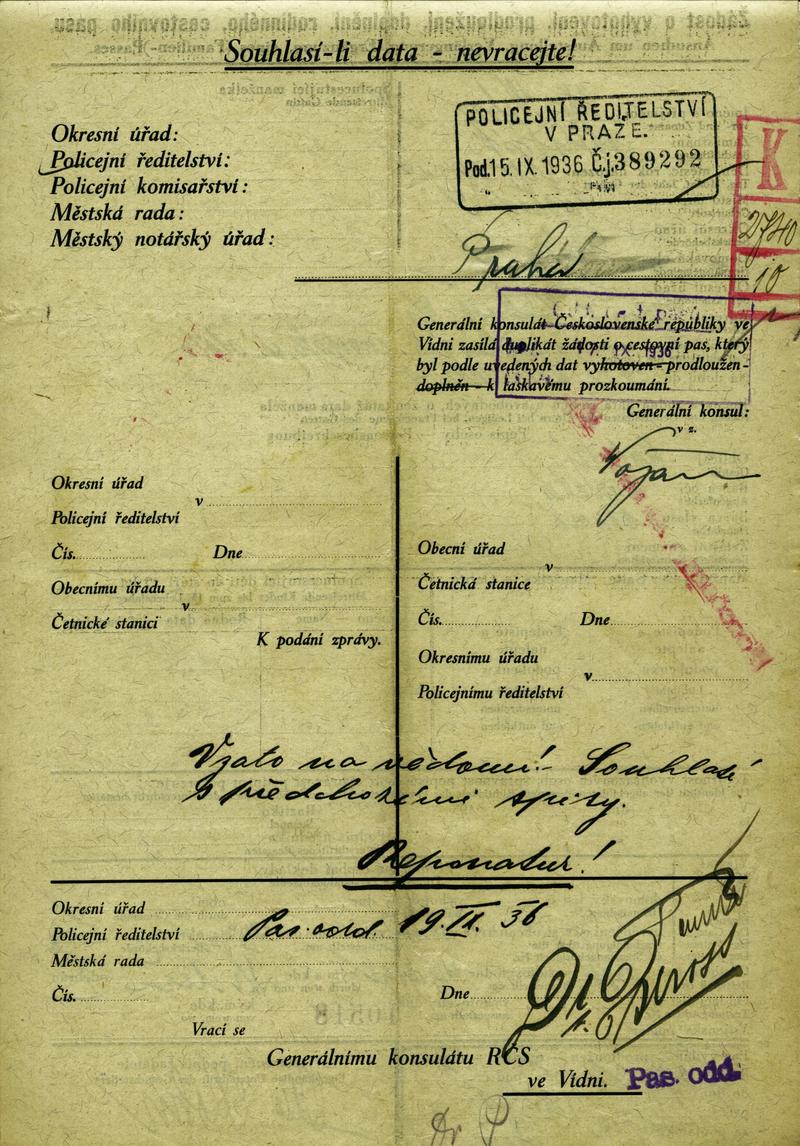 Souhlasí-li data - nevracejte!
POLICEJNÍ ŘEDITELSTVÍ
V PRAZE.
Pod. 15. IX. 1936 Č.j. 389292
K
2740
10
Okresní úřad:
Policejní ředitelství:
Policejní komisařství:
Městská rada:
Městský notářský úřad:
Praha
Generální konsulát Československé republiky ve
Vídni zasílá duplikát žádosti o cestovní pas, který
byl podle uvedených dat vyhotoven - prodloužen -
doplněn - k laskavému prozkoumání.
IX. 1936
Generální konsul:
v z.
Okresní úřad
v
Policejní ředitelství
Čís. Dne
Obecnímu úřadu
v
Četnické stanici
K podání zprávy.
Obecní úřad
v
Četnická stanice
Čís. Dne
Okresnímu úřadu
v
Policejnímu ředitelství
Vzato na vědomí! Souhlasí
s předchozími spisy.
Reponatur!
Okresní úřad
Policejní ředitelství Pas. odd. 19. IX. 36
Městská rada
Čís. Dne
Dr.
Vrací se
Generálnímu konsulátu RČS
ve Vídni. Pas. odd.
Dr P